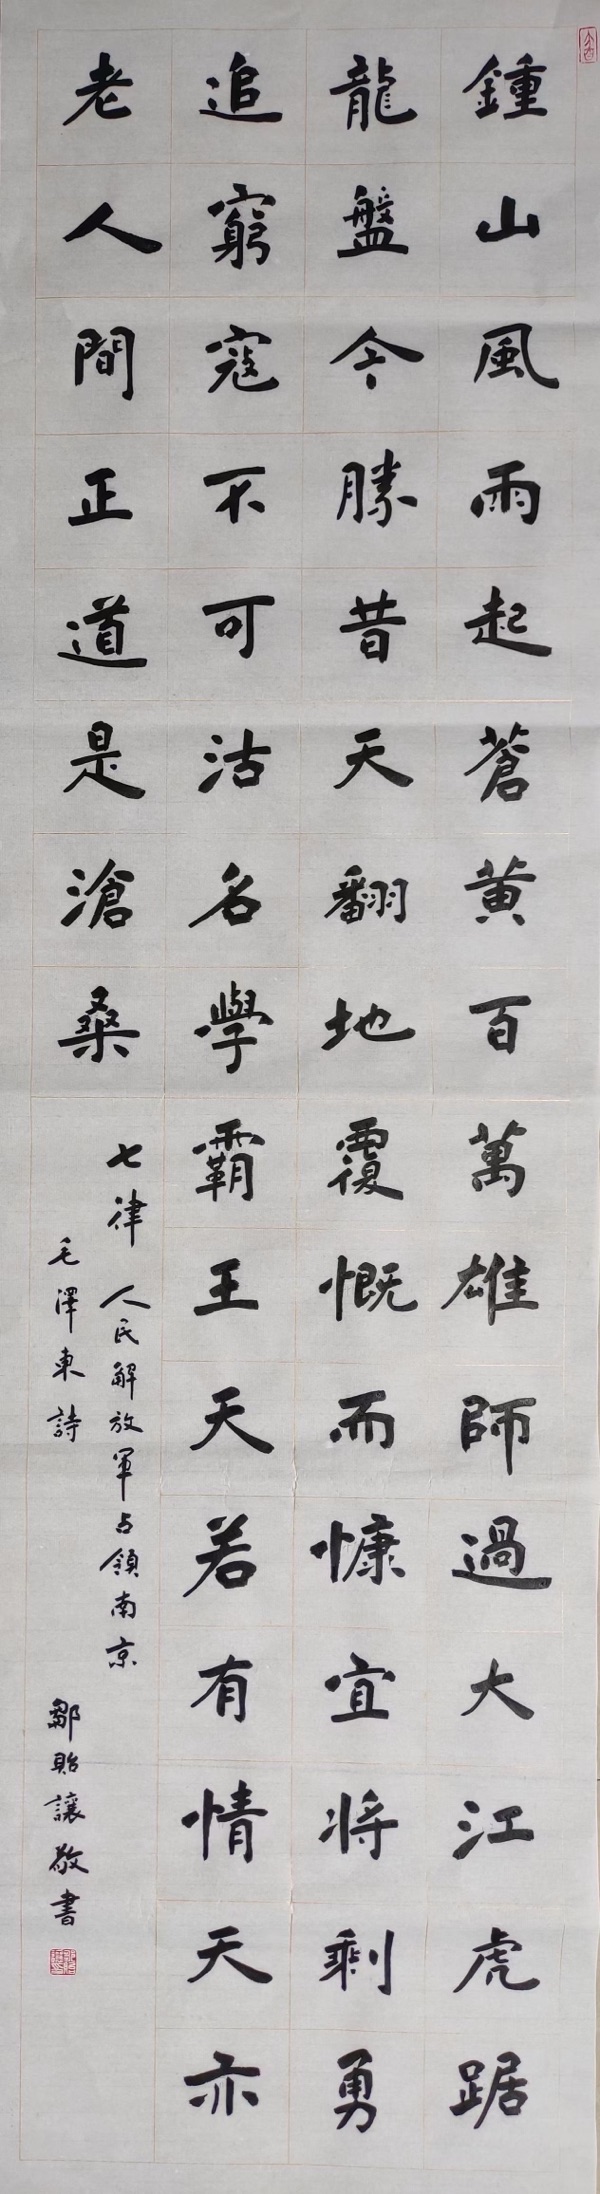 鍾山風雨起蒼黄百萬雄師過大江虎踞
龍盤今勝昔天翻地覆慨而慷宜将剩勇
追窮寇不可沽名學霸王天若有情天亦
老人間正道是滄桑
七律 人民解放軍占領南京
毛澤東詩 鄒貽讓敬書